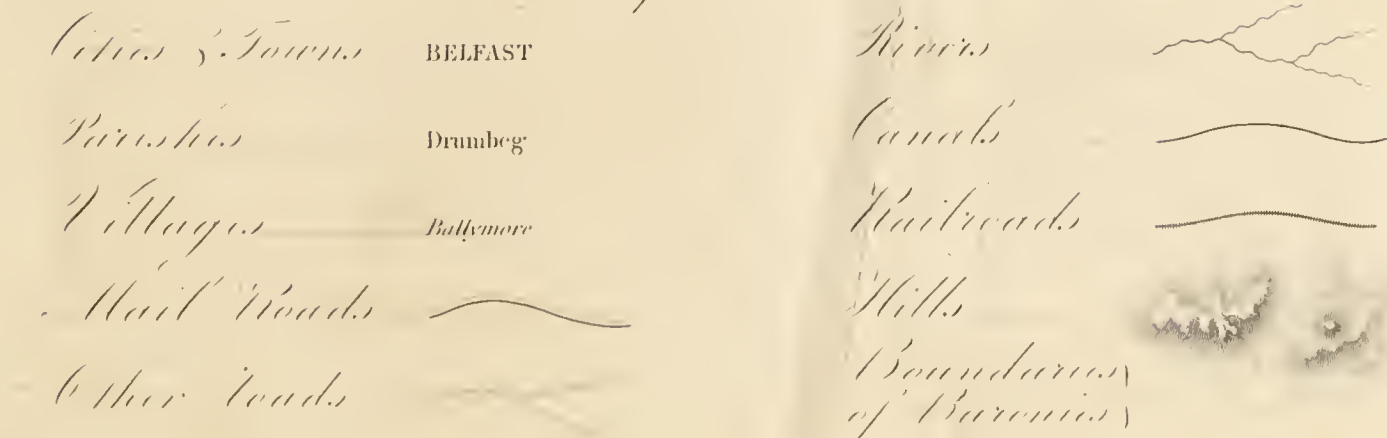 Cities & Towns BELFAST
Parishes Drumbeg
Villages Ballymore
Mail Roads
Other roads
Rivers
Canals
Railroads
Hills
Boundaries
of Baronies